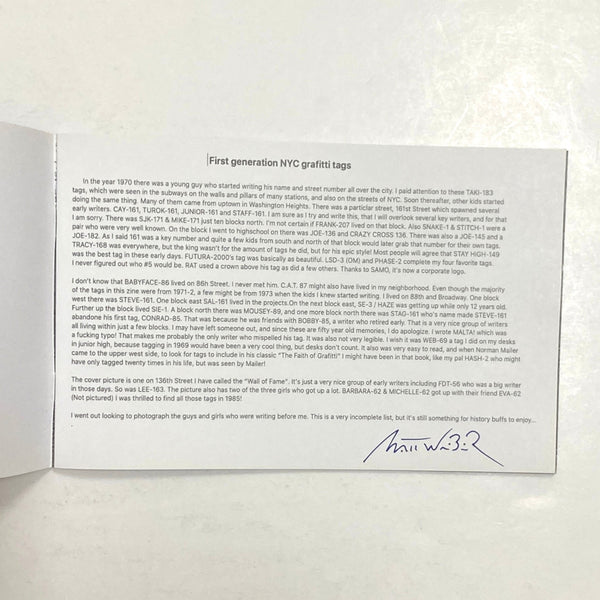 First generation NYC grafitti tags
In the year 1970 there was a young guy who started writing his name and street number all over the city. I paid attention to these TAKI-183
tags, which were seen in the subways on the walls and pillars of many stations, and also on the streets of NYC. Soon thereafter, other kids started
doing the same thing. Many of them came from uptown in Washington Heights. There was a particlar street, 161st Street which spawned several
early writers. CAY-161, TUROK-161, JUNIOR-161 and STAFF-161. I am sure as I try and write this, that I will overlook several key writers, and for that
I am sorry. There was SJK-171 & MIKE-171 just ten blocks north. I'm not certain if FRANK-207 lived on that block. Also SNAKE-1 & STITCH-1 were a
pair who were very well known. On the block I went to highschool on there was JOE-136 and CRAZY CROSS 136. There was also a JOE-145 and a
JOE-182. As I said 161 was a key number and quite a few kids from south and north of that block would later grab that number for their own tags,
TRACY-168 was everywhere, but the king wasn't for the amount of tags he did, but for his epic style! Most people will agree that STAY HIGH-149
was the best tag in these early days. FUTURA-2000's tag was basically as beautiful. LSD-3 (OM) and PHASE-2 complete my four favorite tags.
I never figured out who #5 would be. RAT used a crown above his tag as did a few others. Thanks to SAMO, it's now a corporate logo.
I don't know that BABYFACE-86 lived on 86th Street. I never met him. C.A.T. 87 might also have lived in my neighborhood. Even though the majority
of the tags in this zine were from 1971-2, a few might be from 1973 when the kids I knew started writing. I lived on 88th and Broadway. One block
west there was STEVE-161. One block east SAL-161 lived in the projects.On the next block east, SE-3 / HAZE was getting up while only 12 years old.
Further up the block lived SIE-1. A block north there was MOUSEY-89, and one more block north there was STAG-161 who's name made STEVE-161
abandone his first tag, CONRAD-85. That was because he was friends with BOBBY-85, a writer who retired early. That is a very nice group of writers
all living within just a few blocks. I may have left someone out, and since these are fifty year old memories, I do apologize. I wrote MALTA! which was
a fucking typo! That makes me probably the only writer who mispelled his tag. It was also not very legible. I wish it was WEB-69 a tag I did on my desks
in junior high, because tagging in 1969 would have been a very cool thing, but desks don't count. It also was very easy to read, and when Norman Mailer
came to the upper west side, to look for tags to include in his classic "The Faith of Grafitti" I might have been in that book, like my pal HASH-2 who might
have only tagged twenty times in his life, but was seen by Mailer!
The cover picture is one on 136th Street I have called the "Wall of Fame". It's just a very nice group of early writers including FDT-56 who was a big writer
in those days. So was LEE-163. The picture also has two of the three girls who got up a lot. BARBARA-62 & MICHELLE-62 got up with their friend EVA-62
(Not pictured) I was thrilled to find all those tags in 1985!
I went out looking to photograph the guys and girls who were writing before me. This is a very incomplete list, but it's still something for history buffs to enjoy...
.